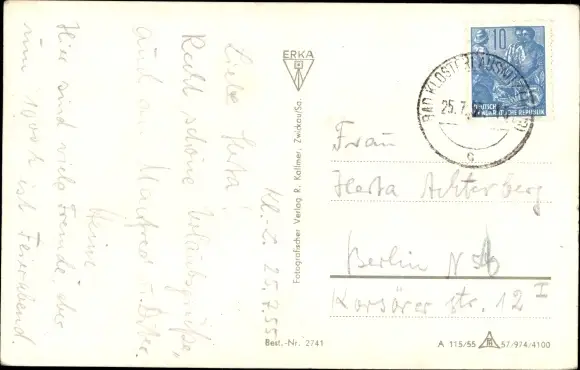 Kl.-L. 25.7.55
Liebe Herta!
Recht schöne Urlaubsgrüße,
auch an Manfred u. Dieter.
Heinz
Hier sind viele Fremde, aber
um 1900 h ist Feierabend.
ERKA
Fotografischer Verlag R. Kallmer, Zwickau/Sa.
Best.-Nr. 2741
10
DEUTSCHE
DEMOKRATISCHE REPUBLIK
5
BAD KLOSTERLAUSNITZ
25.7.
c
Frau
Herta Achterberg
Berlin N
Korsörer str. 12 I
A 115/55 57/974/4100